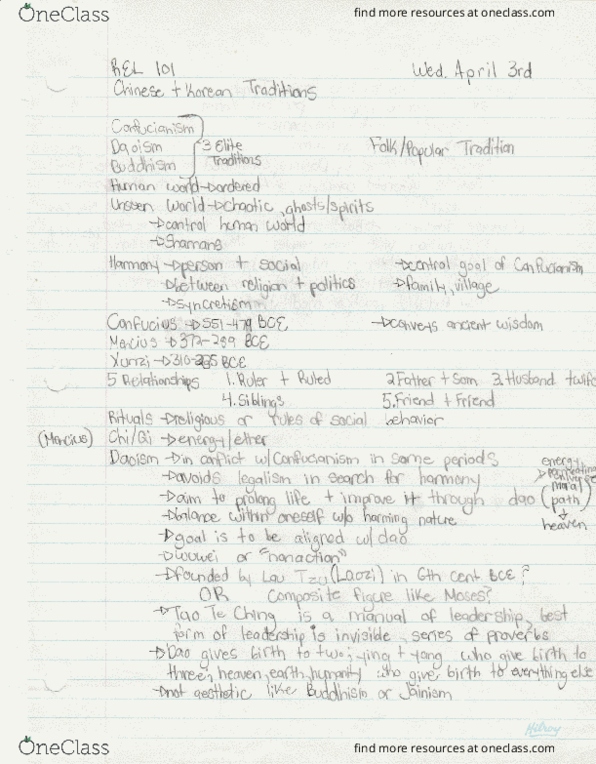 OneClass find more resources at oneclass.com
REL 101 Wed. April 3rd
Chinese + Korean Traditions
Confucianism
Daoism 3 Elite Folk/Popular Tradition
Buddhism Traditions
Human world→ordered
Unseen World→chaotic, ghosts/spirits
→control human world
→Shamans
Harmony→person + social →central goal of Confucianism
→between religion + politics →family, village
→syncretism
Confucius→551-479 BCE →conveys ancient wisdom
Mencius→372-289 BCE
Xunzi→310-235 BCE
5 Relationships 1. Ruler + Ruled 2 Father + Son 3. Husband + wife
4. Siblings 5. Friend + Friend
Rituals→religious or rules of social behavior
(Mencius) Chi/Qi→energy/ether
Daoism→in conflict w/Confucianism in some periods
→avoids legalism in search for harmony
→aim to prolong life + improve it through dao (moral path)
energy, permeating universe
→balance within oneself w/o harming nature
↓ heaven
→goal is to be aligned w/ dao
→wuwei or "nonaction"
→founded by Lau Tzu (Laozi) in 6th cent BCE?
OR Composite figure like Moses?
→Tao Te Ching is a manual of leadership, best
form of leadership is invisible, series of proverbs
→Dao gives birth to two; ying + yang who give birth to
three; heaven, earth, humanity who give birth to everything else
→not aesthetic like Buddhism or Jainism
Hilroy
OneClass find more resources at oneclass.com